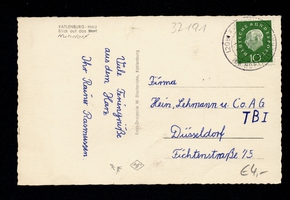 KATLENBURG-HARZ
Blick auf das Westl
37191
Viele Feriengrüße
aus dem Harz
Ihr Rainer Rasmussen
DEUTSCHE BUNDESPOST
10
Firma
Hein, Lehmann u. Co. AG
TBI
Düsseldorf
Fichtenstraße 75
€4,-